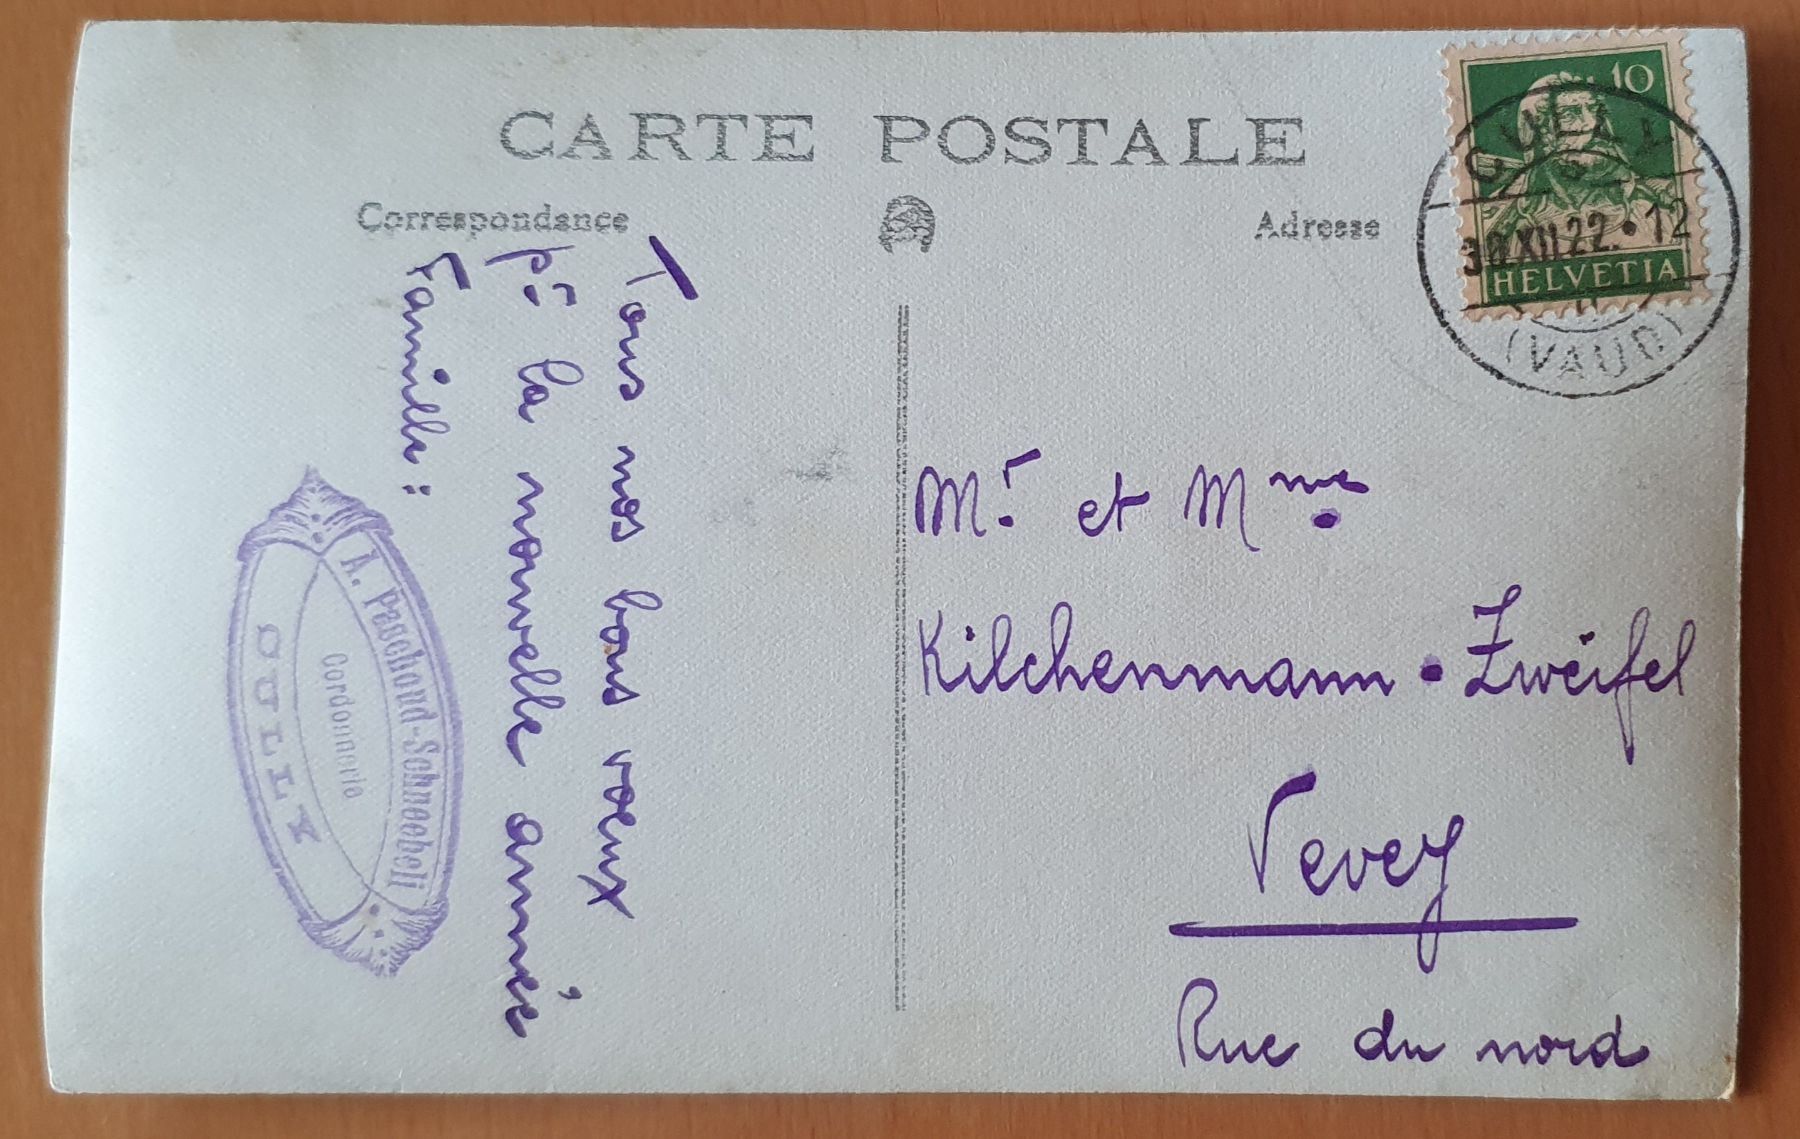 CARTE POSTALE
Correspondance
Adresse
10
HELVETIA
CULLY
30.XII.22.•12
(VAUD)
Tous nos bons voeux
pr la nouvelle année
Famille :
A. Paschoud-Schneebeli
Cordonnerie
CULLY
Mr et Mme
Kilchenmann • Zweifel
Vevey
Rue du nord